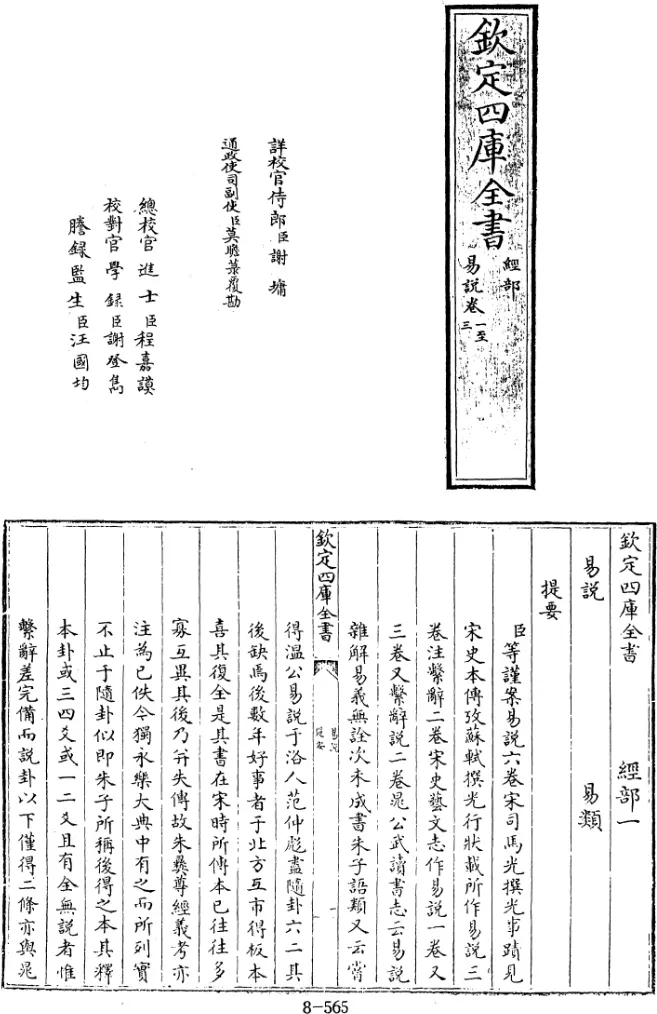 欽定四庫全書
經部
易説卷一至三
詳校官侍郎臣謝墉
通政使司副使臣莫瞻菉覆勘
總校官進士臣程嘉謨
校對官學録臣謝登雋
謄錄監生臣汪國均
欽定四庫全書 經部一
易説 易類
提要
臣等謹案易説六卷宋司馬光撰光事蹟見
宋史本傳攷蘇軾撰光行狀載所作易説三
卷注繫辭二卷宋史藝文志作易説一卷又
三卷又繫辭説二卷晁公武讀書志云易説
雜解易義無詮次未成書朱子語類又云嘗
欽定四庫全書
易説
提要
一
得溫公易説于洛人范仲彪盡隨卦六二其
後缺焉後數年好事者于北方互市得板本
喜其復全是其書在宋時所傳本已往往多
寡互異其後乃并失傳故朱彝尊經義考亦
注為已佚今獨永樂大典中有之而所列實
不止于隨卦似即朱子所稱後得之本其釋
本卦或三四爻或一二爻且有全無説者惟
繫辭差完備而説卦以下僅得二條亦與晁
8-565